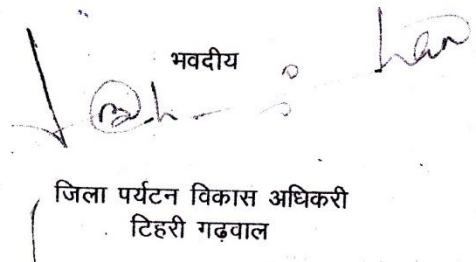 भवदीय
जिला पर्यटन विकास अधिकरी
टिहरी गढ़वाल